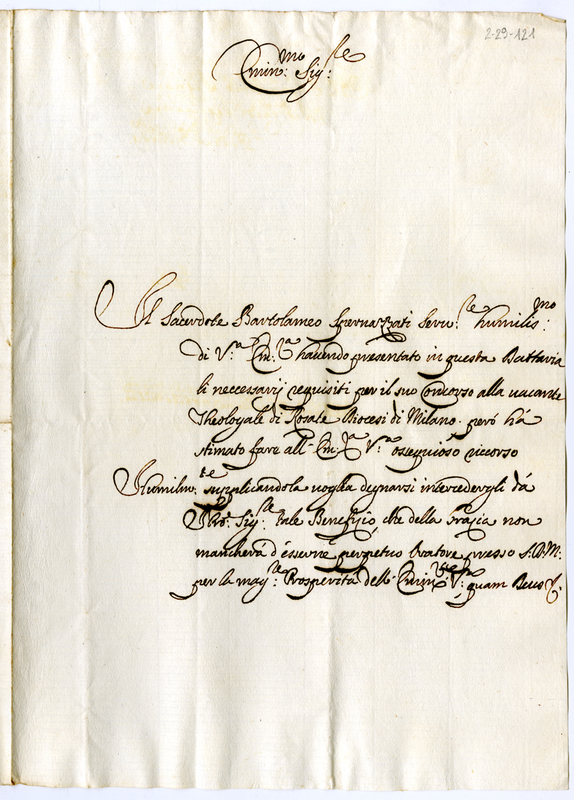 2-29-121
Emin:mo Sig:re
Il Sacerdote Bartolameo Spernazzati Serv:re humilis:mo
di V:a Em:za havendo presentato in questa Dattaria
li neccessarij requisiti per il suo Concorso alla vacante
Theologale di Rosate Diocesi di Milano. peró há
stimato fare all' Em:za V:a ossequioso riccorso
Humilm:te supplicandola voglia degnarsi intercedergli dá
Sig:re tale Beneficio, che della Grazia non
mancherá d'essere perpetuo Oratore presso S.D.M:
per la mag:re Prosperitá dell' Emin:za V:a quam Deus &.